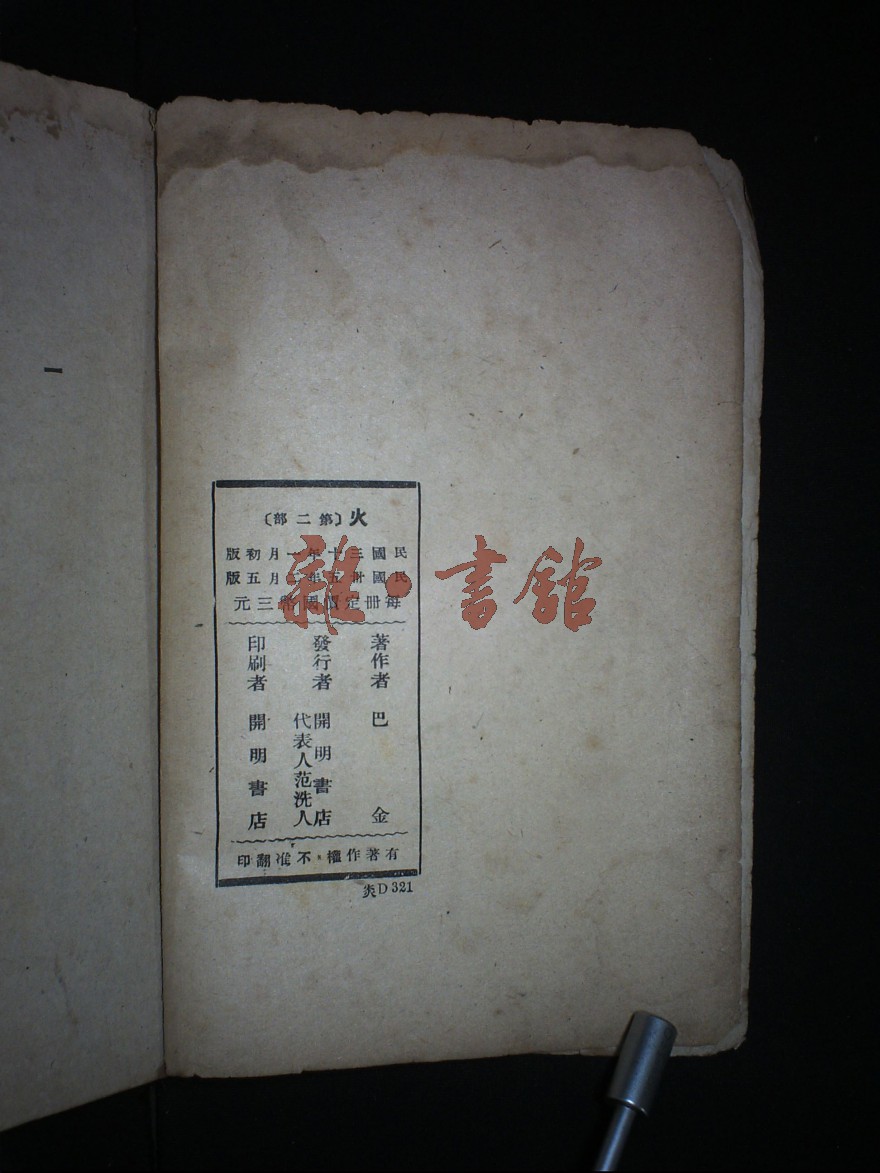 火〔第二部〕
民國三十年一月初版
民國卅五年二月五版
每冊定價國幣三元
著作者 巴金
發行者 開明書店
代表人范洗人
印刷者 開明書店
有著作權·不准翻印
炎D321
雜·書館